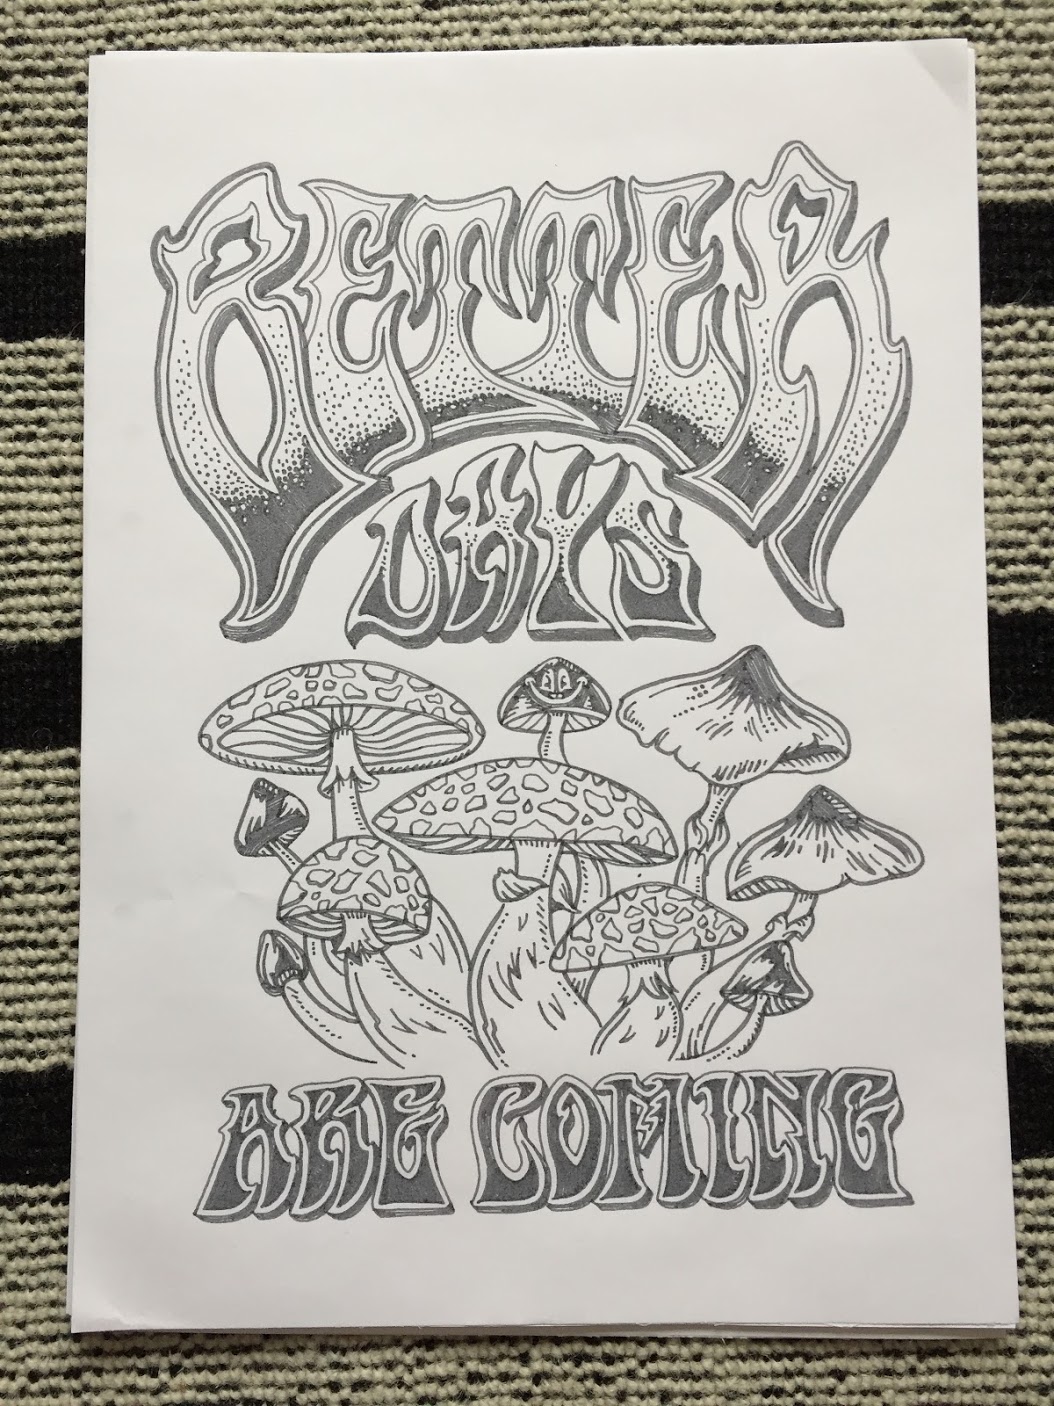 BETTER
DAYS
ARE COMING